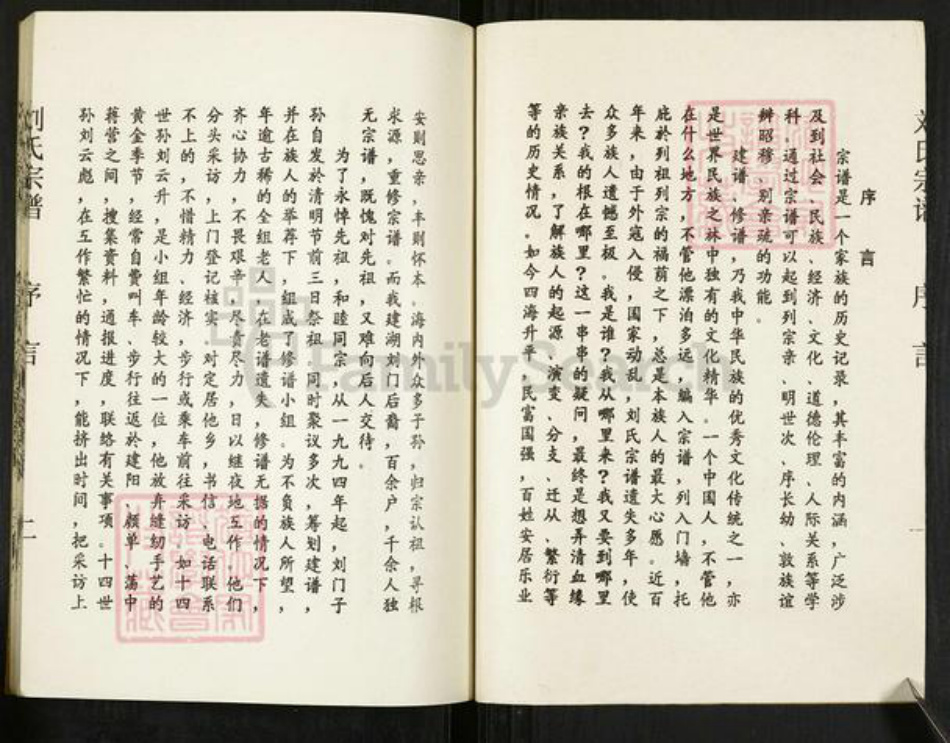 序言
宗谱是一个家族的历史记录，其丰富的内涵，广泛涉
及到社会、民族、经济、文化、道德伦理、人际关系等学
科，通过宗谱可以起到列宗亲、明世次、序长幼、敦族谊
辨昭穆、别亲疏的功能。
建谱、修谱，乃我中华民族的优秀文化传统之一，亦
是世界民族之林中独有的文化精华。一个中国人，不管他
在什么地方，不管他漂泊多远，编入宗谱，列入门墙，托
庇於列祖列宗的福荫之下，总是本族人的最大心愿。近百
年来，由于外寇入侵，国家动乱，刘氏宗谱遗失多年，使
众多族人遗憾至极。我是谁？我从哪里来？我又要到哪里
去？我的根在哪里？这一串串的疑问，最终是想弄清血缘
亲族关系，了解族人的起源、演变、分支、迁从、繁衍等
等的历史情况。如今四海升平，民富国强，百姓安居乐业
安则思亲，丰则怀本。海内外众多子孙，归宗认祖，寻根
求源，重修宗谱。而我建湖刘门后裔，百余户，千余人独
无宗谱，既愧对先祖，又难向后人交待。
为了永悼先祖，和睦同宗，从一九九四年起，刘门子
孙自发於清明节前三日祭祖，同时聚议多次，筹划建谱，
并在族人的举荐下，组成了修谱小组。为不负族人所望，
年逾古稀的全组老人，在老谱遗失，修谱无据的情况下，
齐心协力，不畏艰辛，尽责尽力，日以继夜地工作。他们
分头采访，上门登记核实，对定居他乡，书信、电话联系
不上的，不惜精力、经济，步行或乘车前往采访。如十四
世孙刘云升，是小组年龄较大的一位，他放弃缝纫手艺的
黄金季节，经常自费叫车、步行往返於建阳、颜单、荡中
蒋营之间，搜集资料，通报进度，联络有关事项。十四世
孙刘云彪，在工作繁忙的情况下，能挤出时间，把采访上
刘氏宗谱 序言 二
FamilySearch